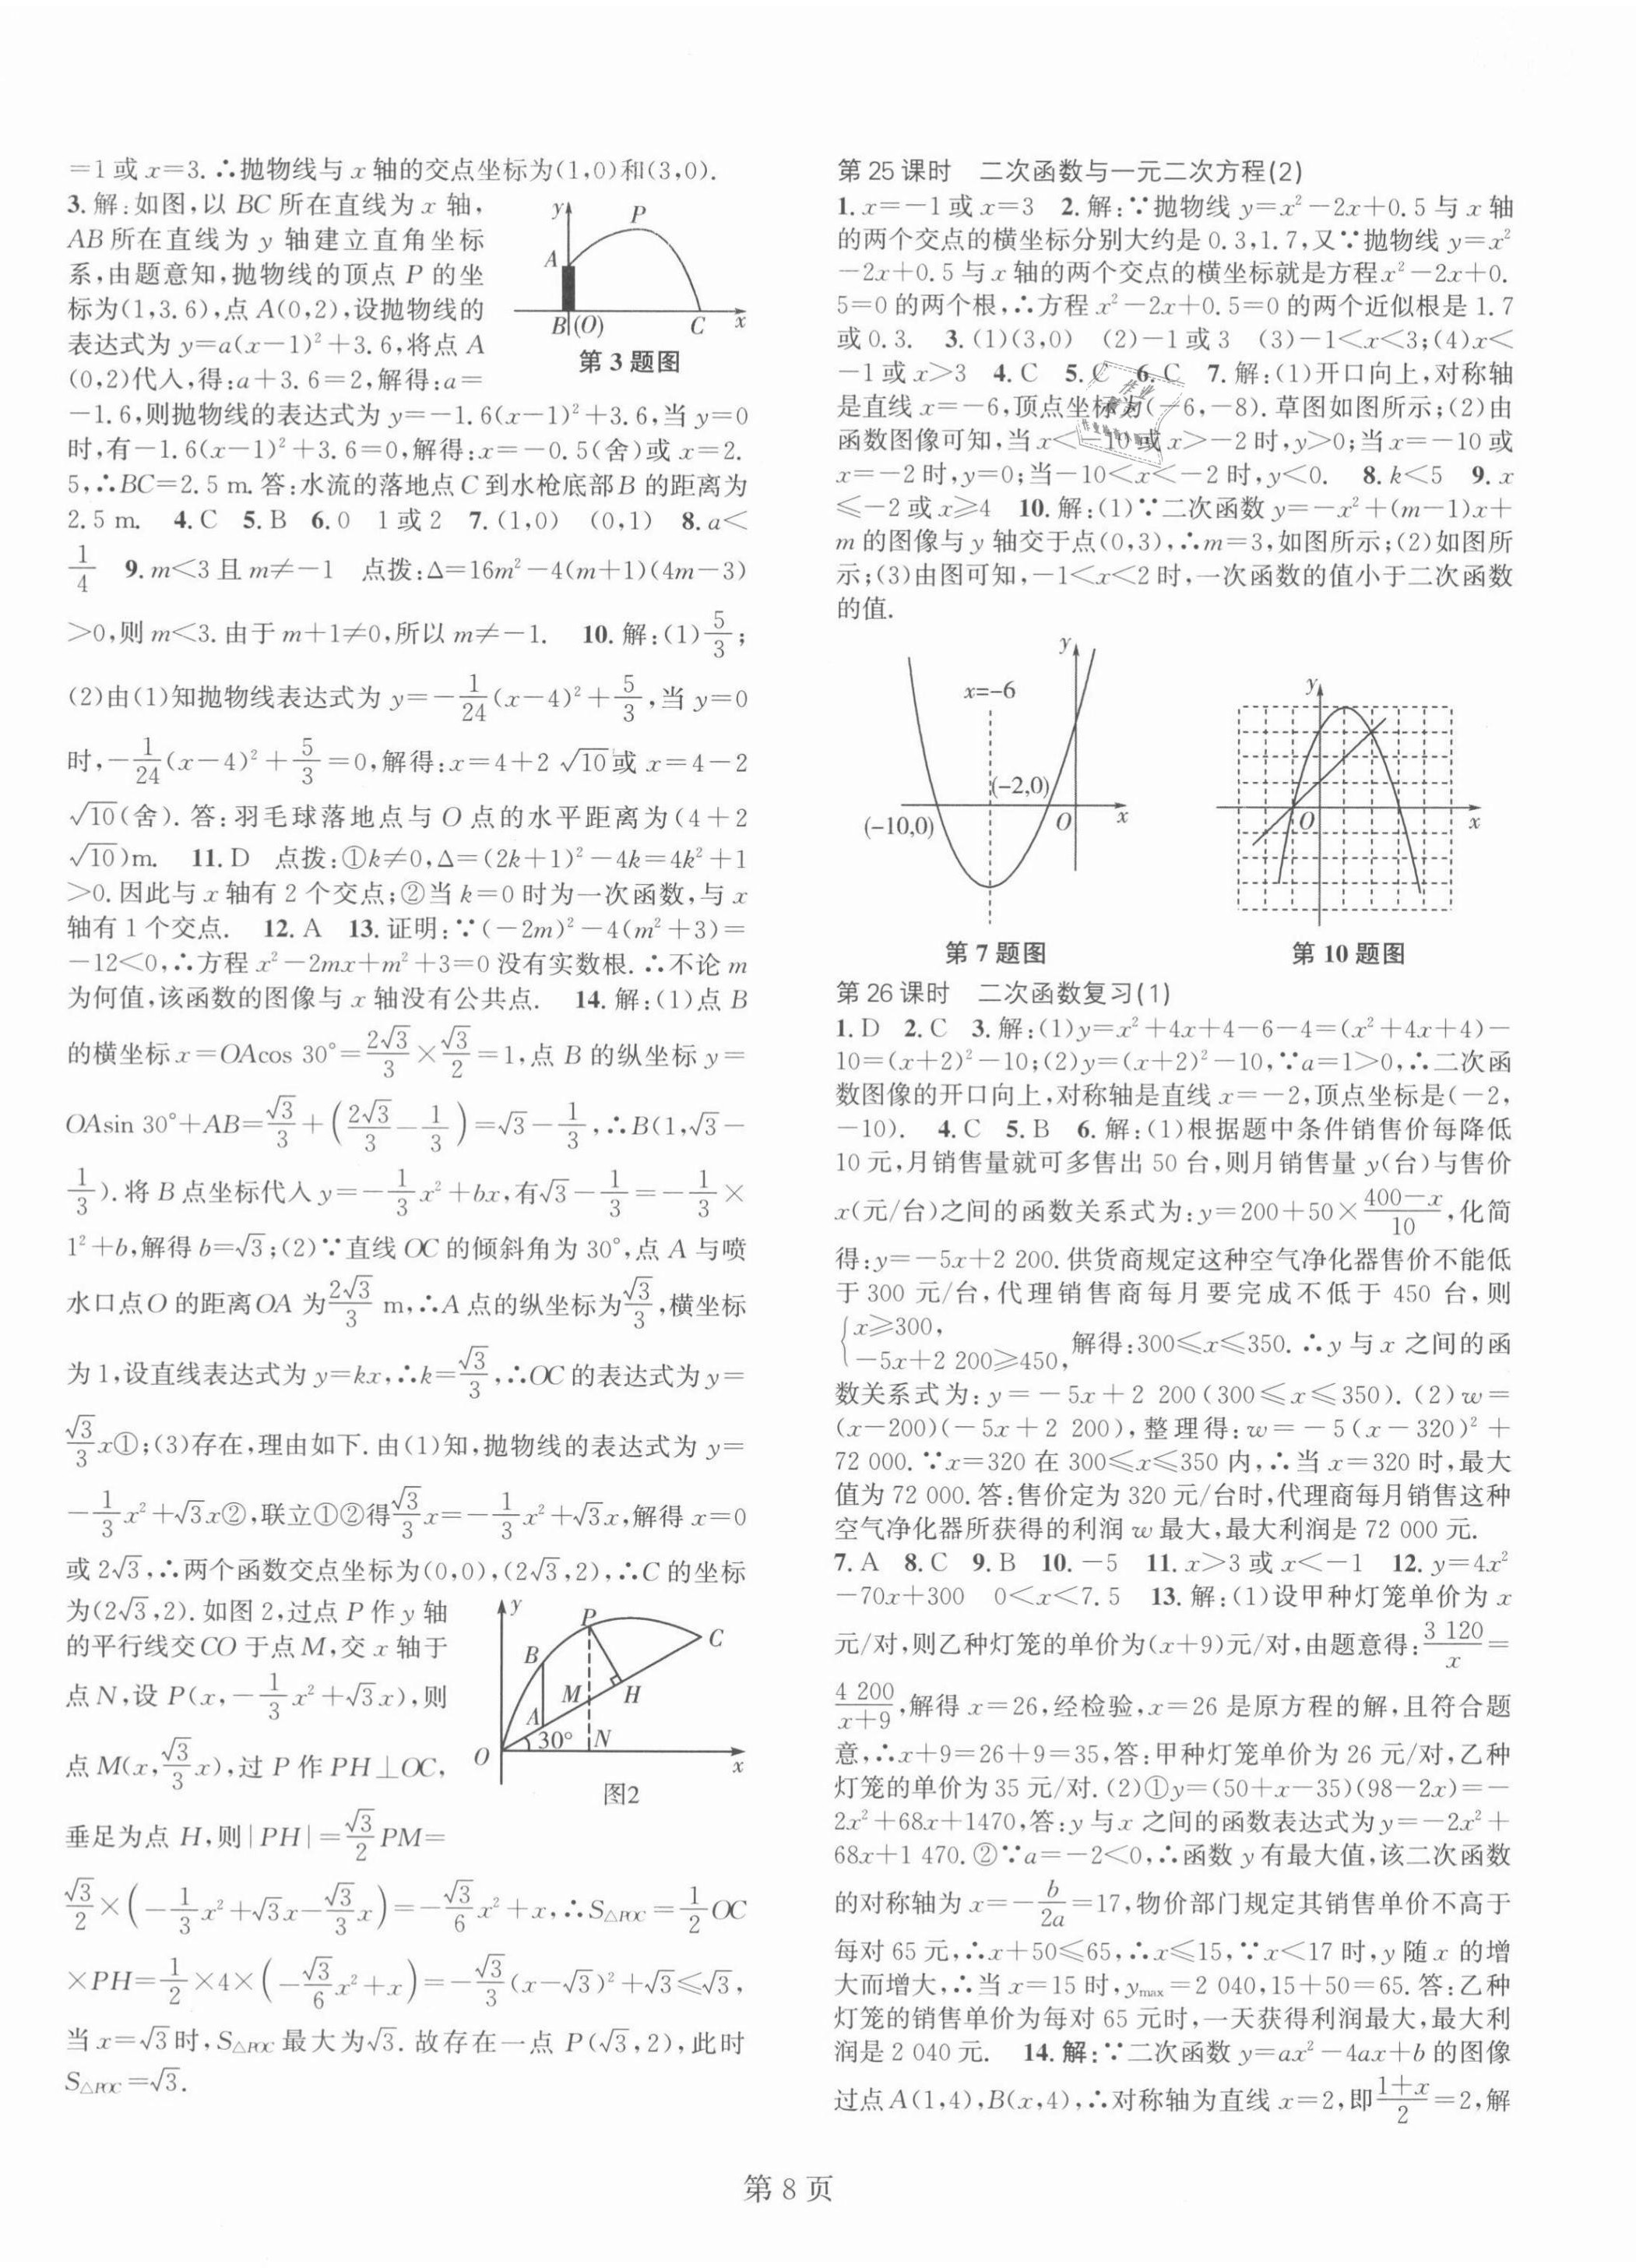 =1或x=3.∴抛物线与x轴的交点坐标为(1,0)和(3,0).
3.解:如图,以BC所在直线为x轴,
AB所在直线为y轴建立直角坐标
系,由题意知,抛物线的顶点P的坐
标为(1,3.6),点A(0,2),设抛物线的
表达式为y=a(x-1)²+3.6,将点A
(0,2)代入,得:a+3.6=2,解得:a=
y P A B (O) C x
第3题图
-1.6,则抛物线的表达式为y=-1.6(x-1)²+3.6,当y=0
时,有-1.6(x-1)²+3.6=0,解得:x=-0.5(舍)或x=2.
5,∴BC=2.5 m.答:水流的落地点C到水枪底部B的距离为
2.5 m. 4.C 5.B 6.0 1或2 7.(1,0) (0,1) 8.a<
1/4 9.m<3且m≠-1 点拨:Δ=16m²-4(m+1)(4m-3)
>0,则m<3.由于m+1≠0,所以m≠-1. 10.解:(1)5/3;
(2)由(1)知抛物线表达式为y=-1/24(x-4)²+5/3,当y=0
时,-1/24(x-4)²+5/3=0,解得:x=4+2√10或x=4-2
√10(舍).答:羽毛球落地点与O点的水平距离为(4+2
√10)m. 11.D 点拨:①k≠0,Δ=(2k+1)²-4k=4k²+1
>0.因此与x轴有2个交点;②当k=0时为一次函数,与x
轴有1个交点. 12.A 13.证明:∵(-2m)²-4(m²+3)=
-12<0,∴方程x²-2mx+m²+3=0没有实数根.∴不论m
为何值,该函数的图像与x轴没有公共点. 14.解:(1)点B
的横坐标x=OAcos 30°=2√3/3×√3/2=1,点B的纵坐标y=
OAsin 30°+AB=√3/3+(2√3/3-1/3)=√3-1/3,∴B(1,√3-
1/3).将B点坐标代入y=-1/3x²+bx,有√3-1/3=-1/3×
1²+b,解得b=√3;(2)∵直线OC的倾斜角为30°,点A与喷
水口点O的距离OA为2√3/3 m,∴A点的纵坐标为√3/3,横坐标
为1,设直线表达式为y=kx,∴k=√3/3,∴OC的表达式为y=
√3/3x①;(3)存在,理由如下.由(1)知,抛物线的表达式为y=
-1/3x²+√3x②,联立①②得√3/3x=-1/3x²+√3x,解得x=0
或2√3,∴两个函数交点坐标为(0,0),(2√3,2),∴C的坐标
为(2√3,2).如图2,过点P作y轴
的平行线交CO于点M,交x轴于
点N,设P(x,-1/3x²+√3x),则
点M(x,√3/3x),过P作PH⊥OC,
垂足为点H,则|PH|=√3/2PM=
y P B C M H A 30° N O x
图2
√3/2×(-1/3x²+√3x-√3/3x)=-√3/6x²+x,∴S△POC=1/2OC
×PH=1/2×4×(-√3/6x²+x)=-√3/3(x-√3)²+√3≤√3,
当x=√3时,S△POC最大为√3.故存在一点P(√3,2),此时
S△POC=√3.
第25课时 二次函数与一元二次方程(2)
1.x=-1或x=3 2.解:∵抛物线y=x²-2x+0.5与x轴
的两个交点的横坐标分别大约是0.3,1.7,又∵抛物线y=x²
-2x+0.5与x轴的两个交点的横坐标就是方程x²-2x+0.
5=0的两个根,∴方程x²-2x+0.5=0的两个近似根是1.7
或0.3. 3.(1)(3,0) (2)-1或3 (3)-1<x<3;(4)x<
-1或x>3 4.C 5.C 6.C 7.解:(1)开口向上,对称轴
是直线x=-6,顶点坐标为(-6,-8).草图如图所示;(2)由
函数图像可知,当x<-10或x>-2时,y>0;当x=-10或
x=-2时,y=0;当-10<x<-2时,y<0. 8.k<5 9.x
≤-2或x≥4 10.解:(1)∵二次函数y=-x²+(m-1)x+
m的图像与y轴交于点(0,3),∴m=3,如图所示;(2)如图所
示;(3)由图可知,-1<x<2时,一次函数的值小于二次函数
的值.
y x=-6 (-2,0) (-10,0) O x
第7题图
y O x
第10题图
第26课时 二次函数复习(1)
1.D 2.C 3.解:(1)y=x²+4x+4-6-4=(x²+4x+4)-
10=(x+2)²-10;(2)y=(x+2)²-10,∵a=1>0,∴二次函
数图像的开口向上,对称轴是直线x=-2,顶点坐标是(-2,
-10). 4.C 5.B 6.解:(1)根据题中条件销售价每降低
10元,月销售量就可多售出50台,则月销售量y(台)与售价
x(元/台)之间的函数关系式为:y=200+50×(400-x)/10,化简
得:y=-5x+2 200.供货商规定这种空气净化器售价不能低
于300元/台,代理销售商每月要完成不低于450台,则
{x≥300,
-5x+2 200≥450, 解得:300≤x≤350.∴y与x之间的函
数关系式为:y=-5x+2 200(300≤x≤350).(2)w=
(x-200)(-5x+2 200),整理得:w=-5(x-320)²+
72 000.∵x=320在300≤x≤350内,∴当x=320时,最大
值为72 000.答:售价定为320元/台时,代理商每月销售这种
空气净化器所获得的利润w最大,最大利润是72 000元.
7.A 8.C 9.B 10.-5 11.x>3或x<-1 12.y=4x²
-70x+300 0<x<7.5 13.解:(1)设甲种灯笼单价为x
元/对,则乙种灯笼的单价为(x+9)元/对,由题意得:3 120/x=
4 200/(x+9),解得x=26,经检验,x=26是原方程的解,且符合题
意,∴x+9=26+9=35,答:甲种灯笼单价为26元/对,乙种
灯笼的单价为35元/对.(2)①y=(50+x-35)(98-2x)=-
2x²+68x+1470,答:y与x之间的函数表达式为y=-2x²+
68x+1 470.②∵a=-2<0,∴函数y有最大值,该二次函数
的对称轴为x=-b/2a=17,物价部门规定其销售单价不高于
每对65元,∴x+50≤65,∴x≤15,∵x<17时,y随x的增
大而增大,∴当x=15时,ymax=2 040,15+50=65.答:乙种
灯笼的销售单价为每对65元时,一天获得利润最大,最大利
润是2 040元. 14.解:∵二次函数y=ax²-4ax+b的图像
过点A(1,4),B(x,4),∴对称轴为直线x=2,即(1+x)/2=2,解
第8页